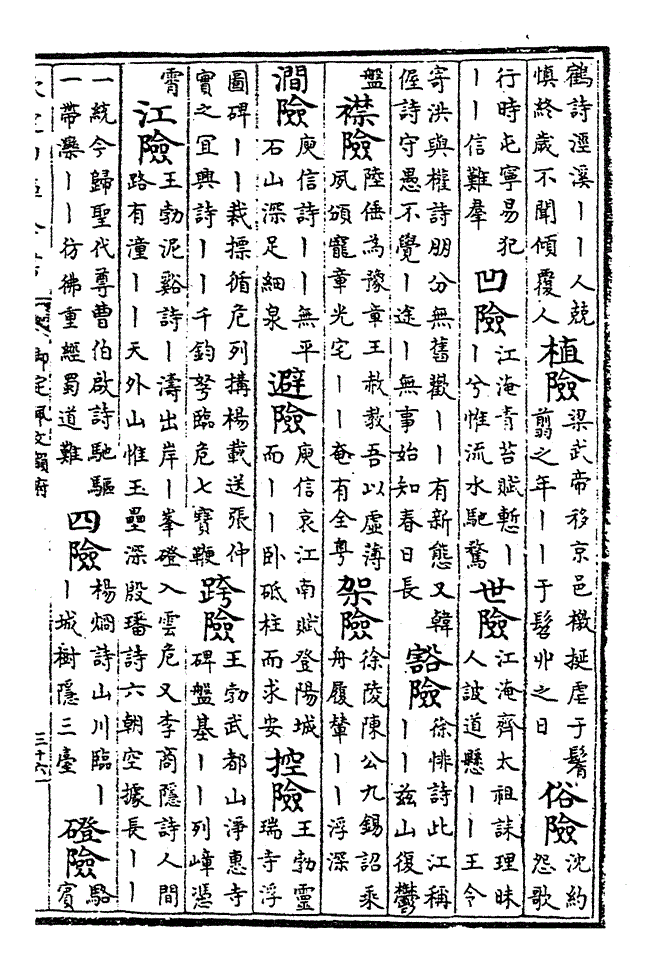 鶴詩溼溪丨丨人競
慎終歲不聞傾覆人
植險
梁武帝移京邑檄挻虐于鬌
翦之年丨丨于髫丱之日
俗險
沈約
怨歌
行時屯寧易犯
丨丨信難羣
凹險
江淹青苔賦慙丨
丨兮惟流水馳騖
世險
江淹齊太祖誄理昧
人詖道懸丨丨王令
寄洪與權詩朋分無舊歡丨丨有新態又韓
偓詩守愚不覺丨途丨無事始知春日長
豁險
徐悱詩此江稱
丨丨兹山復鬱
盤
襟險
陸倕為豫章王赦教吾以虛薄
夙頒寵章光宅丨丨奄有全粤
架險
徐陵陳公九錫詔乘
舟履輦丨丨浮深
澗險
庾信詩丨丨無平
石山深足細泉
避險
庾信哀江南賦登陽城
而丨丨卧砥柱而求安
控險
王勃靈
瑞寺浮
圖碑丨丨裁摽循危列搆楊載送張仲
實之宜興詩丨丨千鈞弩臨危七寶鞭
跨險
王勃武都山淨惠寺
碑盤基丨丨列嶂憑
霄
江險
王勃泥谿詩丨濤出岸丨峯磴入雲危又李商隱詩人間
路有潼丨丨天外山惟玉壘深殷璠詩六朝空據長丨丨
一統今歸聖代尊曹伯啟詩馳驅
一帶灤丨丨彷彿重經蜀道難
四險
楊烱詩山川臨丨
丨城樹隱三臺
磴險
駱
賓
御定佩文韻府
三十六